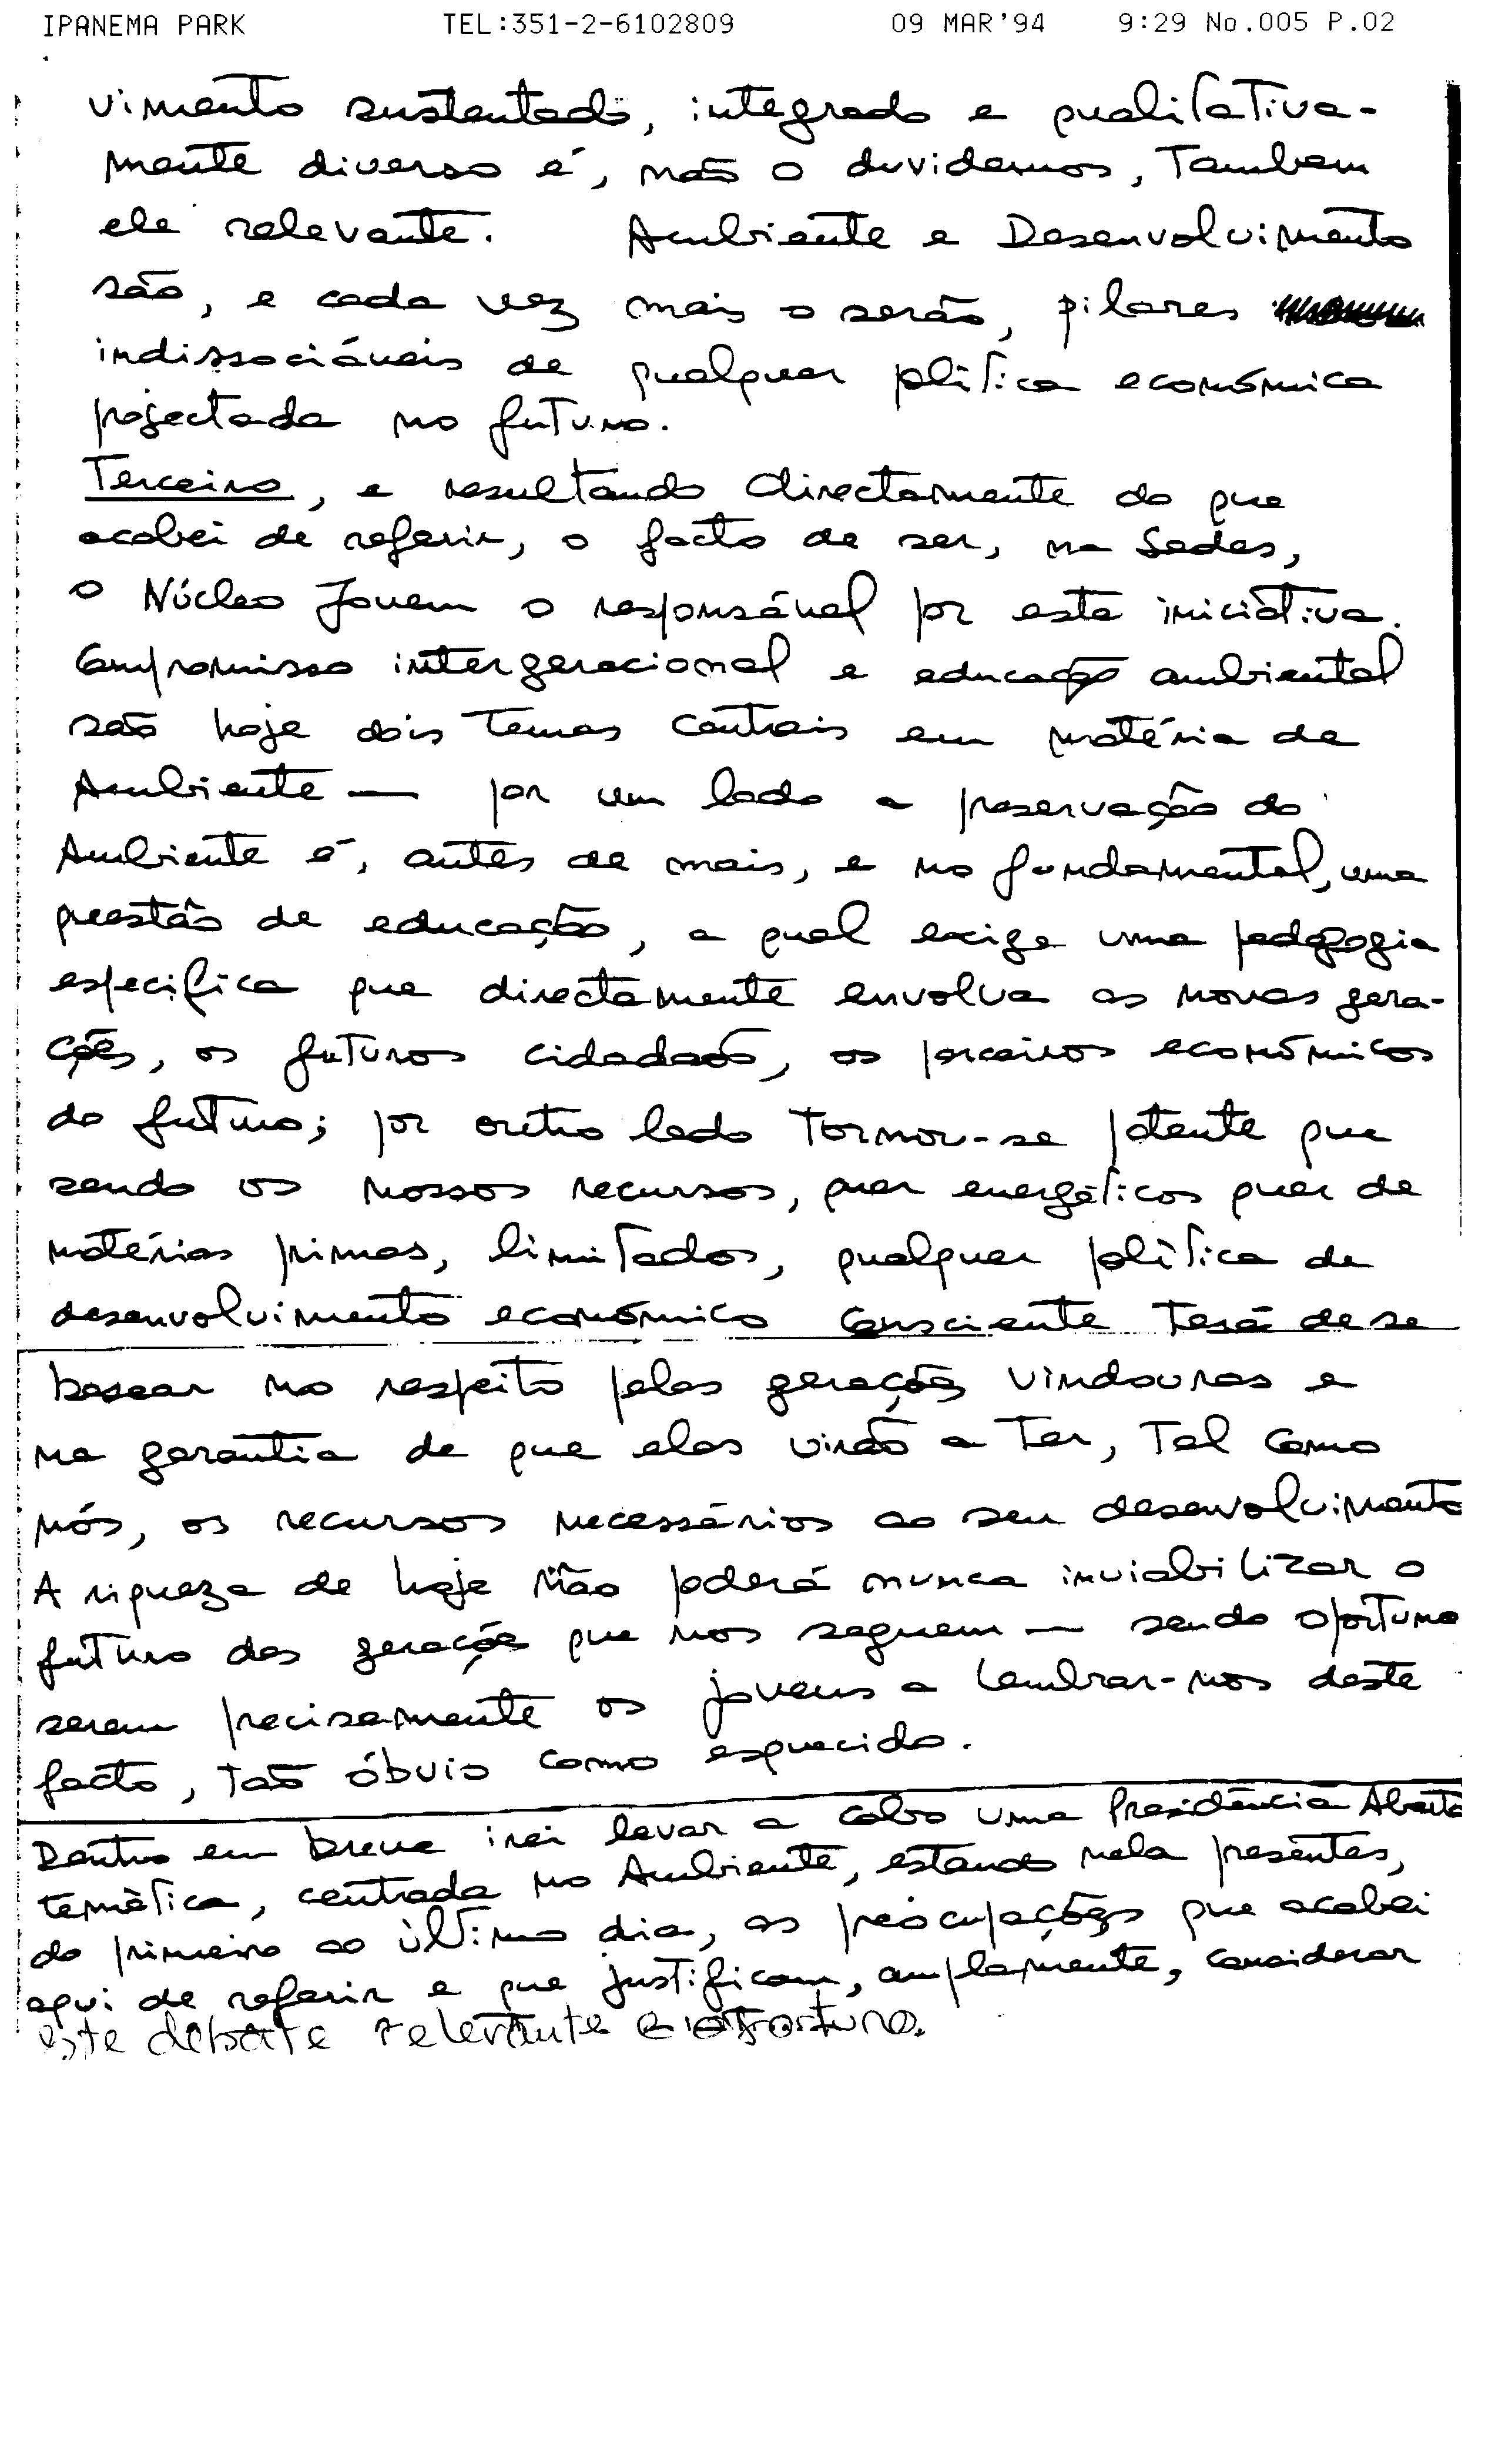 IPANEMA PARK TEL:351-2-6102809 09 MAR'94 9:29 No.005 P.02
vimento sustentado, integrado e qualitativa-
mente diverso é, não o duvidemos, também
ele relevante. Ambiente e Desenvolvimento
são, e cada vez mais o serão, pilares
indissociáveis de qualquer política económica
projectada no futuro.
Terceiro, e resultando directamente do que
acabei de referir, o facto de ser, na Sedes,
o Núcleo Jovem o responsável por esta iniciativa.
Compromisso intergeracional e educação ambiental
são hoje dois temas centrais em matéria de
Ambiente — por um lado a preservação do
Ambiente é, antes de mais, e no fundamental, uma
questão de educação, a qual exige uma pedagogia
especifica que directamente envolva as novas gera-
ções, os futuros cidadãos, os parceiros económicos
do futuro; por outro lado tornou-se patente que
sendo os nossos recursos, quer energéticos quer de
matérias primas, limitados, qualquer política de
desenvolvimento económico consciente terá de se
basear no respeito pelas gerações vindouras e
na garantia de que elas virão a ter, tal como
nós, os recursos necessários ao seu desenvolvimento
A riqueza de hoje não poderá nunca inviabilizar o
futuro das gerações que nos seguem — sendo oportuno
serem precisamente os jovens a lembrar-nos deste
facto, tão óbvio como esquecido.
Dentro em breve irei levar a cabo uma Presidência Aberta
temática, centrada no Ambiente, estando nela presentes,
do primeiro ao último dia, as preocupações que acabei
aqui de referir e que justificam, amplamente, considerar
este debate relevante e oportuno.